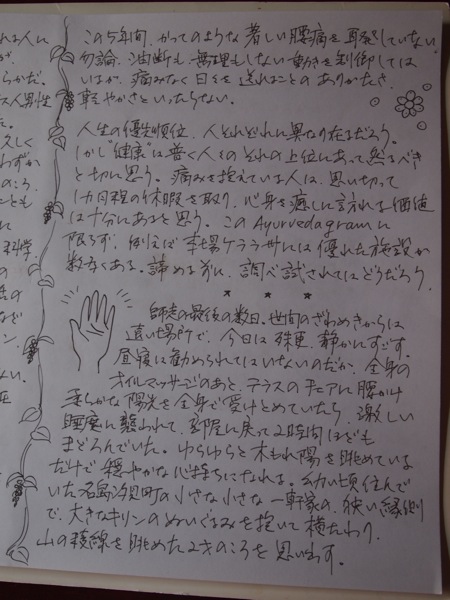 この5年間、かつてのような著しい腰痛を再発していない。
勿論、油断も無理もしない動きを制御しては
いるが、痛みなく日々を送れることのありがたさ、
軽やかさといったらない。
人生の優先順位、人それぞれに異なり在るだろう。
しかし"健康"は普く人々のその上位にあって然るべき
と切に思う。痛みを抱えている人は、思い切って
1カ月程の休暇を取り、心身を癒しに訪れる価値
は十分にあると思う。このAyurvedagramに
限らず、例えば本場ケララ州には優れた施設が
数多くある。諦める前に、調べ試されてはどうだろう。
師走の最後の数日。世間のざわめきからは
遠い場所で、今日は殊更、静かにすごす。
昼寝は勧められてはいないのだが、全身の
オイルマッサージのあと、テラスのチェアに腰かけ
柔らかな陽光を全身で受けとめていたら、激しい
睡魔に襲われて、部屋に戻って2時間ほども
まどろんでいた。ゆらゆらと木もれ陽を眺めている
だけで穏やかな心持ちになれる。幼い頃住んで
いた名島汐見町の小さな小さな一軒家の、狭い縁側
で、大きなキリンのぬいぐるみを抱いて横たわり、
山の稜線を眺めた2才のころを思い出す。
れる人に
が、
らかだ。
ス人男性
た。
久しく
わずか
のころ、
ことも
に
科学、
の